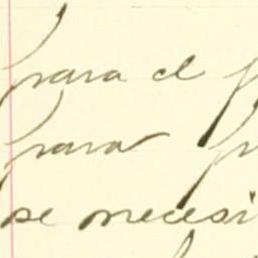 para el
para
se necesi